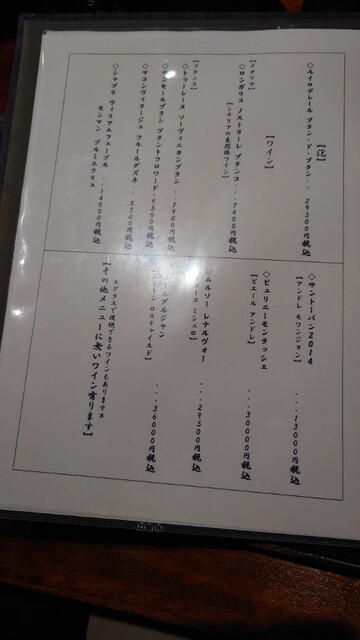 【泡】
◇ルイロデレール ブラン・ド・ブラン・・29500円税込
【ワイン】
【イタリア】
◇ロンガリコ ノストラーレ ブランコ・・・7400円税込
【シチリアの自然派ワイン】
【フランス】
◇トゥーレーヌ ソーヴィニヨンブラン・・・7900円税込
ブラン プラントフロワード・9500円税込
◇マコンヴィラージュ フルールダズキ・・8500円税込
◇シャブリ ウィリアムフェーブル・・・14000円税込
モンマン プルミエクリュ
◇サントーバン2014 ・・・13000円税込
【アンドレ モワンジョン】
◇ピュリニーモンラッシェ ・・・30000円税込
【ピエール アンドレ】
ムルソー レナルヴォー ・・・29500円税込
ミシュロ】
・・・36000円税込
ロスチャイルド】
＊グラスで提供できるワインもあります＊
【その他メニューに無いワイン有ります】